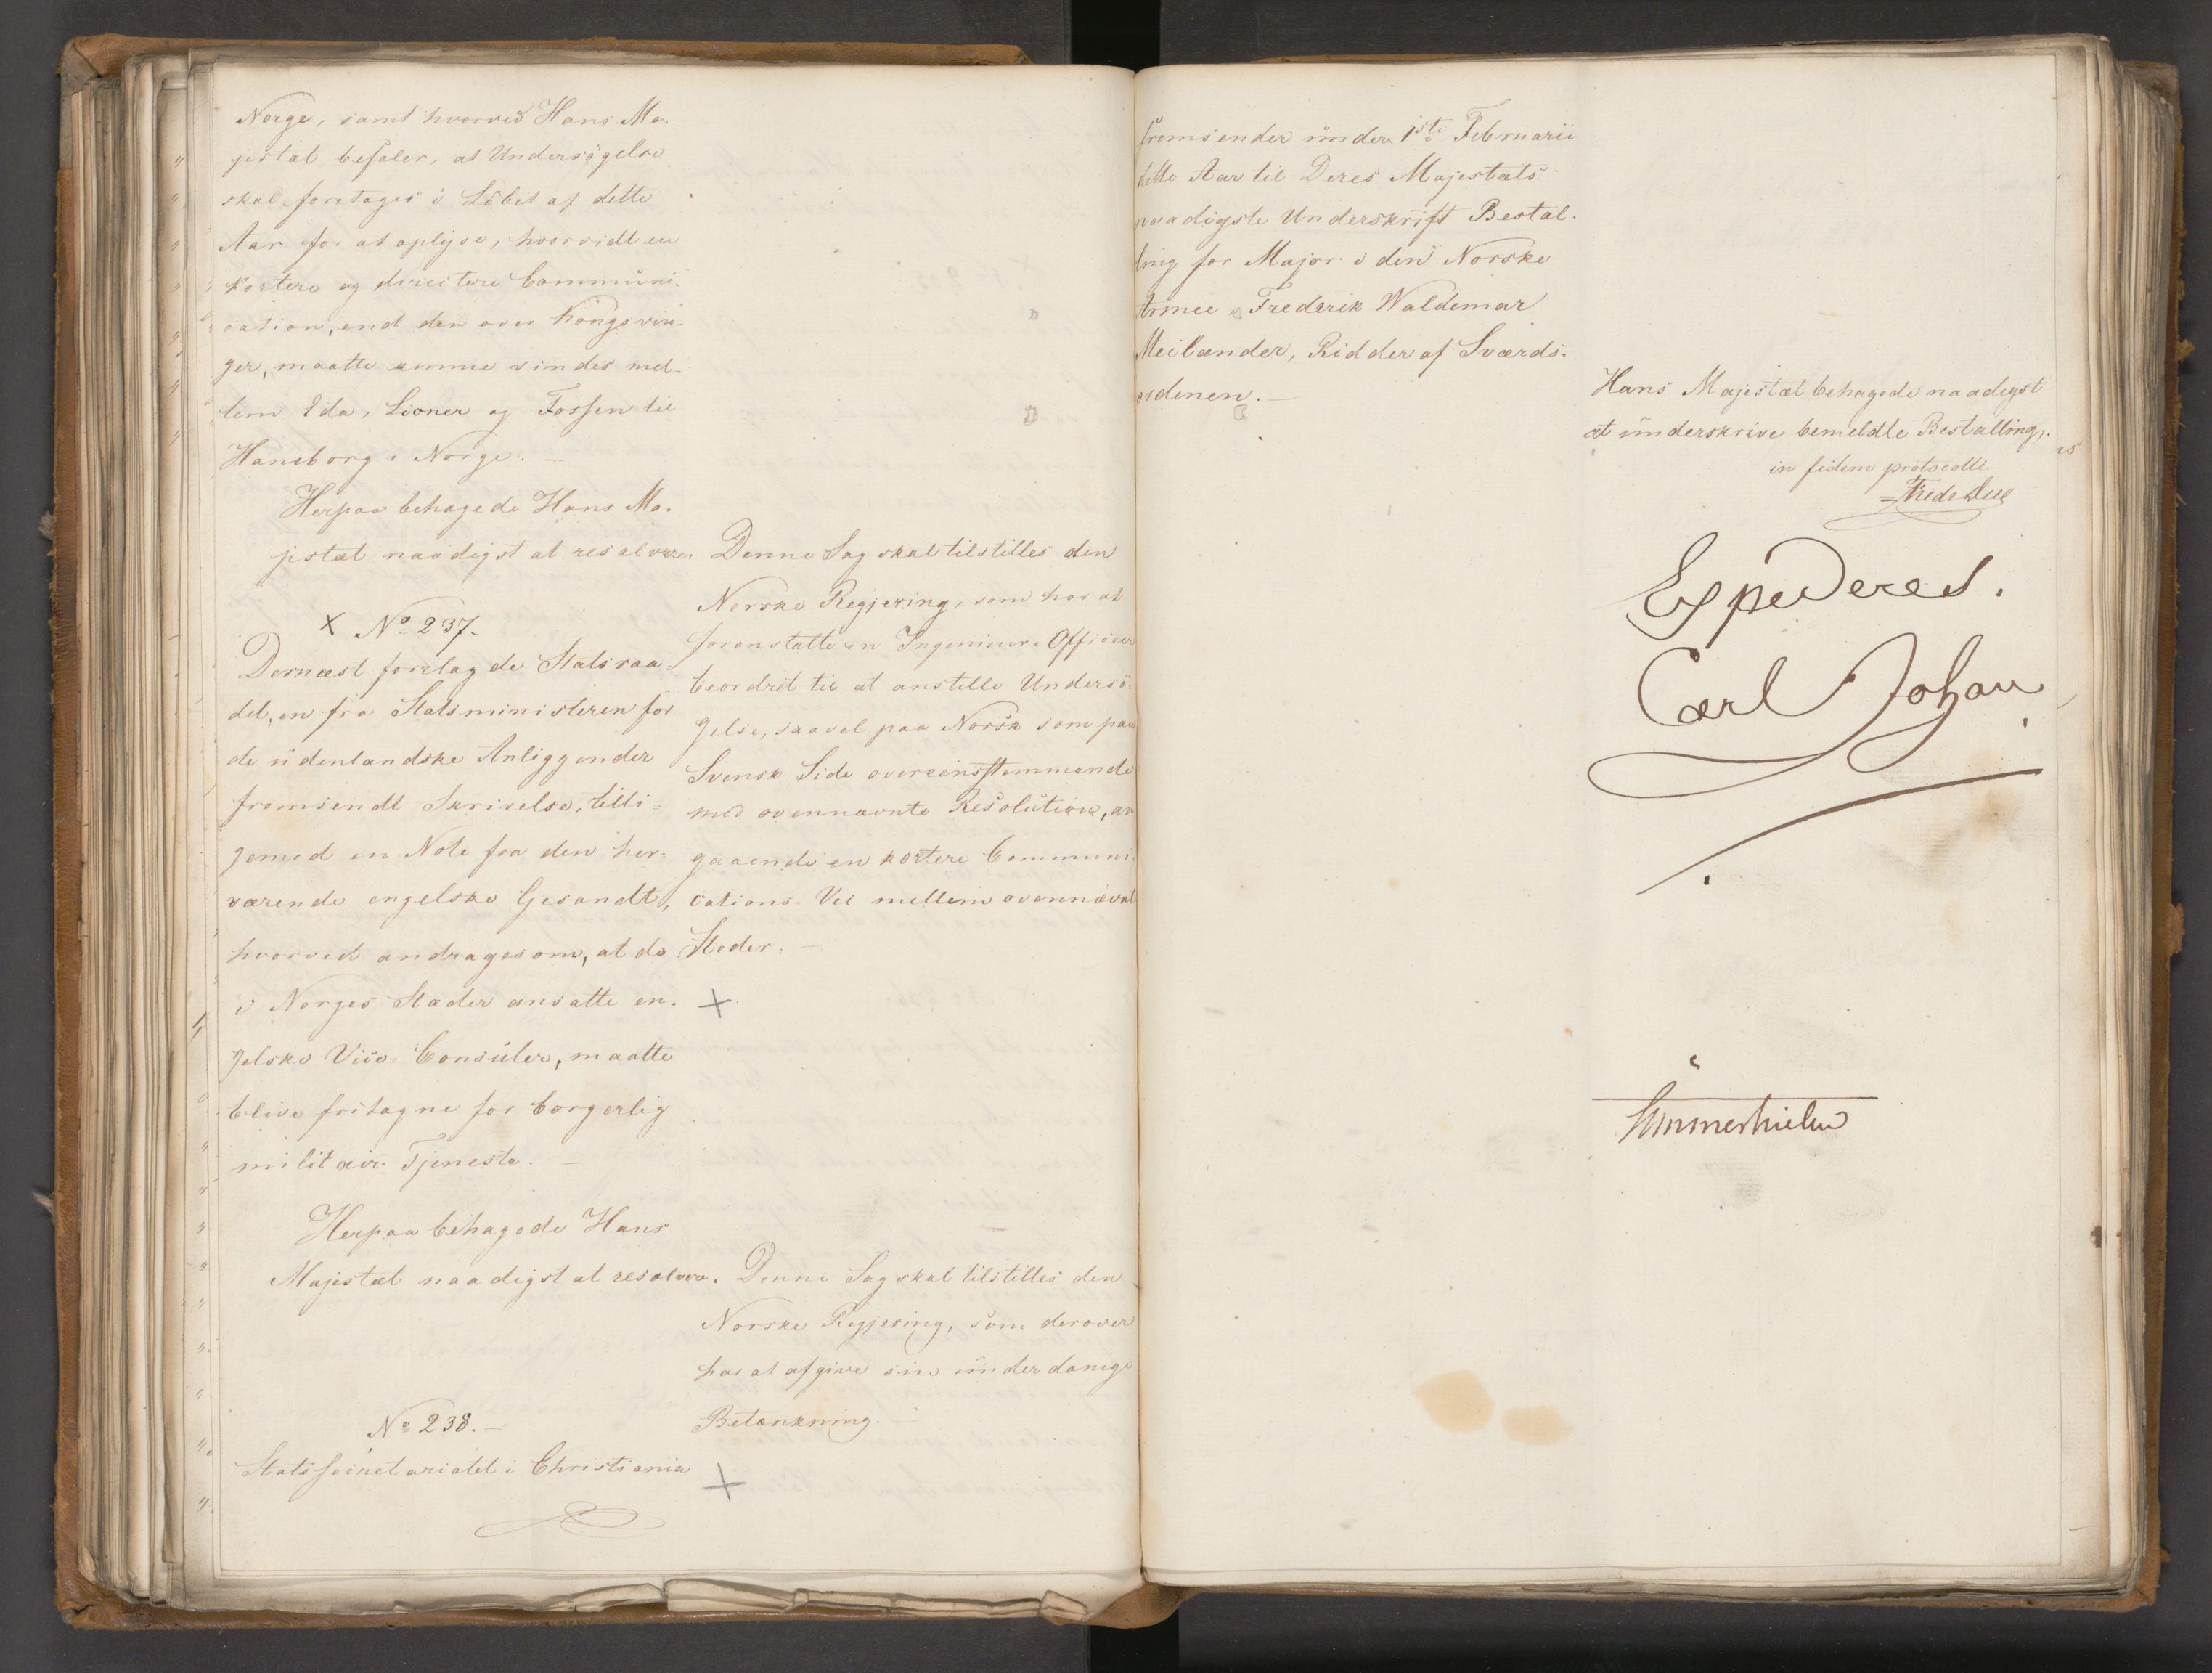 Norge, samt hvorved Hans Ma-
jestæt befaler, at Undersögelse
skal foretages i Löbet af dette
Aar for at oplyse, hvorvidt en
kortere og directere Communi-
cation, end den over Kongsvin-
ger, maatte kunne vindes mel-
lem Eda, Lioner og Fossen til
Haneborg i Norge. —
Herpaa behagede Hans Ma-
jestæt naadigst at resolvere
Denne Sag skal tilstilles den
Norske Regjering, som har at
foranstalte en Ingenieur-Officier
beordret til at anstille Undersö-
gelse, saavel paa Norsk som paa
Svensk Side overeensstemmende
med ovennævnte Resolution, an-
gaaende en kortere Communi-
cations-Vei mellem ovennævnte
Steder. —
X No 237.
Dernæst forelagde Statsraa-
det, en fra Statsministeren for
de udenlandske Anliggender
fremsendt Skrivelse, tilli-
gemed en Note fra den her-
værende engelske Gesandt,
hvorved andrages om, at de
i Norges Stæder ansatte en-
gelske Vice-Consuler, maatte
blive fritagne for borgerlig
militair Tjeneste. —
Herpaa behagede Hans
Majestæt naadigst at resolvere.
Denne Sag skal tilstilles den
Norske Regjering, som derover
har at afgive sin underdanige
Betænkning. —
No 238. —
Statssecretariatet i Christiania
fremsender under 1ste Februarii
dette Aar til Deres Majestæts
naadigste Underskrift Bestal-
ling for Major i den Norske
Armee Frederik Waldemar
Meilænder, Ridder af Sværds-
ordenen. —
Hans Majestæt behagede naadigst
at underskrive bemeldte Bestalling.
in fidem protocolli
Fred. Due
Expederes.
Carl Johan